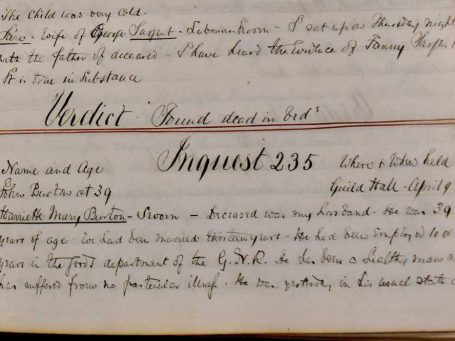 The Child was very cold.
Jane - wife of George Sargent - Labourer Sworn - I sat up on Thursday night
with the father of deceased - I have heard the Evidence of Fanny
It is true in Substance
Verdict "Found dead in bed"
Inquest 235
Name and Age
Where & When held
John Burton at 39
Guild Hall - April 9
Harriette Mary Burton - Sworn - Deceased was my husband - He was 39
years of age - We had been married thirteen years - He had been employed 10 or
years in the goods department of the G.N.R. He has been a healthy man
has suffered from no particular illness - He was, yesterday, in his usual state